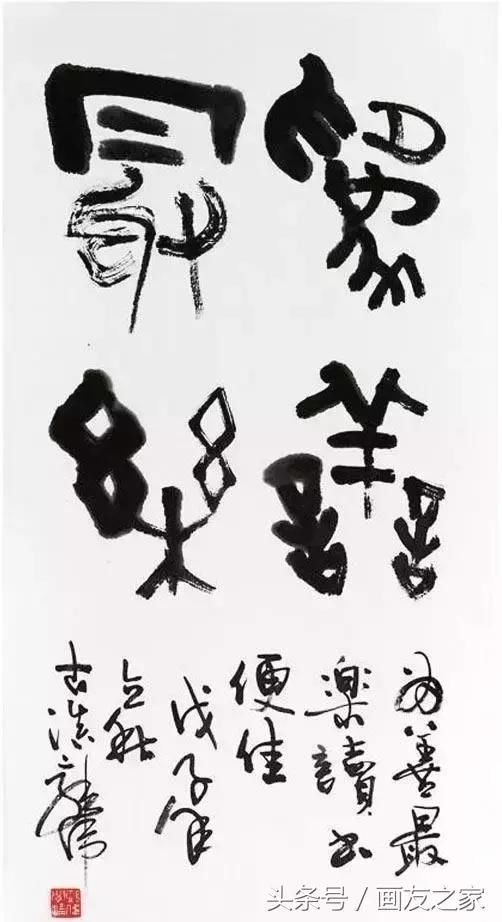 為善
最樂
為善最
樂讀書
便佳
戊子年
立秋
古滇
头条号 / 画友之家